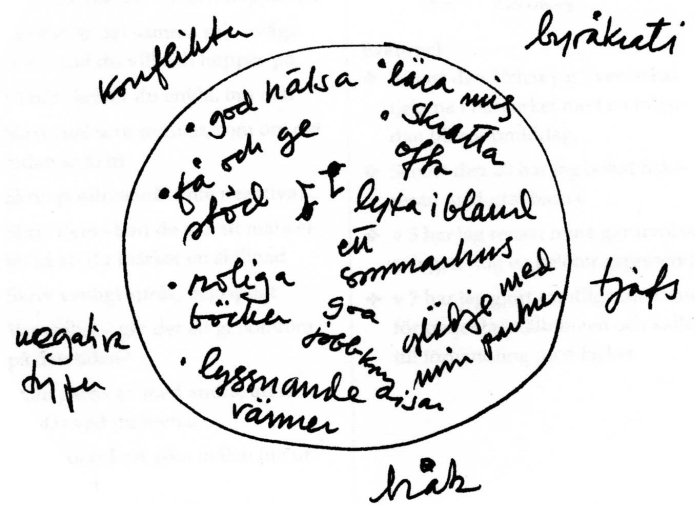 byråkrati
konflikter
• god hälsa
• lära mig
• skratta
ofta
• få och ge
stöd
lyxa ibland
ett
sommarhus
• roliga
böcker
goa
jobb-kom
disar
glädje med
min partner
tjafs
negativa
typer
• lyssnande
vänner
bråk